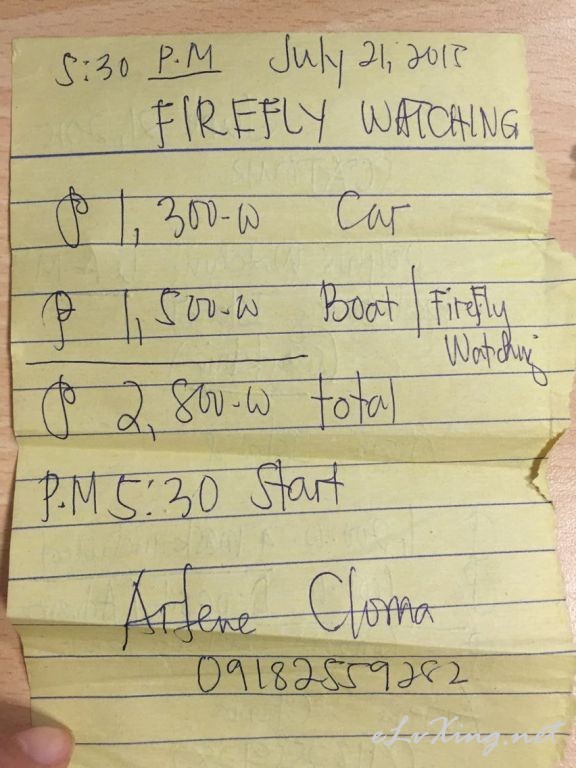 5:30 P.M July 21, 2015
FIREFLY WATCHING
₱ 1,300-00 Car
₱ 1,500-00 Boat | Firefly
Watching
₱ 2,800-00 total
P.M 5:30 Start
Arlene Cloma
09182559282
eLvXing.net